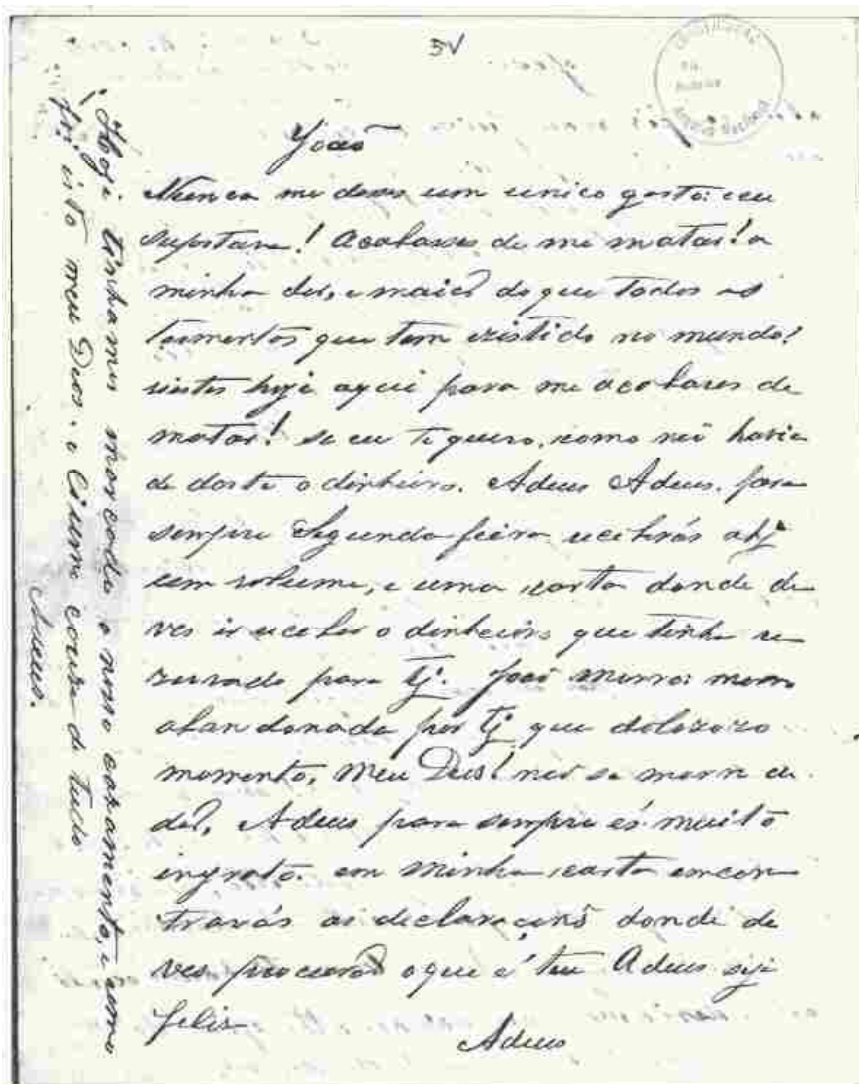 5V
João
Nunca me desses um unico gosto: eu
suportava! Acabasses de me matar! a
minha dor, e maior do que todos os
tormentos que tem existido no mundo!
viestes hoje aqui para me acabares de
matar! se eu te quero, como não havia
de darte o dinheiro. Adeus Adeus, para
sempre Segunda feira recebrás ahj
um volume, e uma carta donde de
ves ir receber o dinheiro que tinha re
zervado para tj. João morro: morro
abandonada por tj que dolorozo
momento, Meu Deus! não se morre de
dor, Adeus para sempre és muito
ingrato. em minha carta emcon
trarás as declaraçoins donde de
ves procurar o que é teu Adeus sejé
felis
Adeus
Hoje tinhamos marcado o nosso casamento, e como
foi isto meu Deos. o Ciume couza de tudo
Adeus.